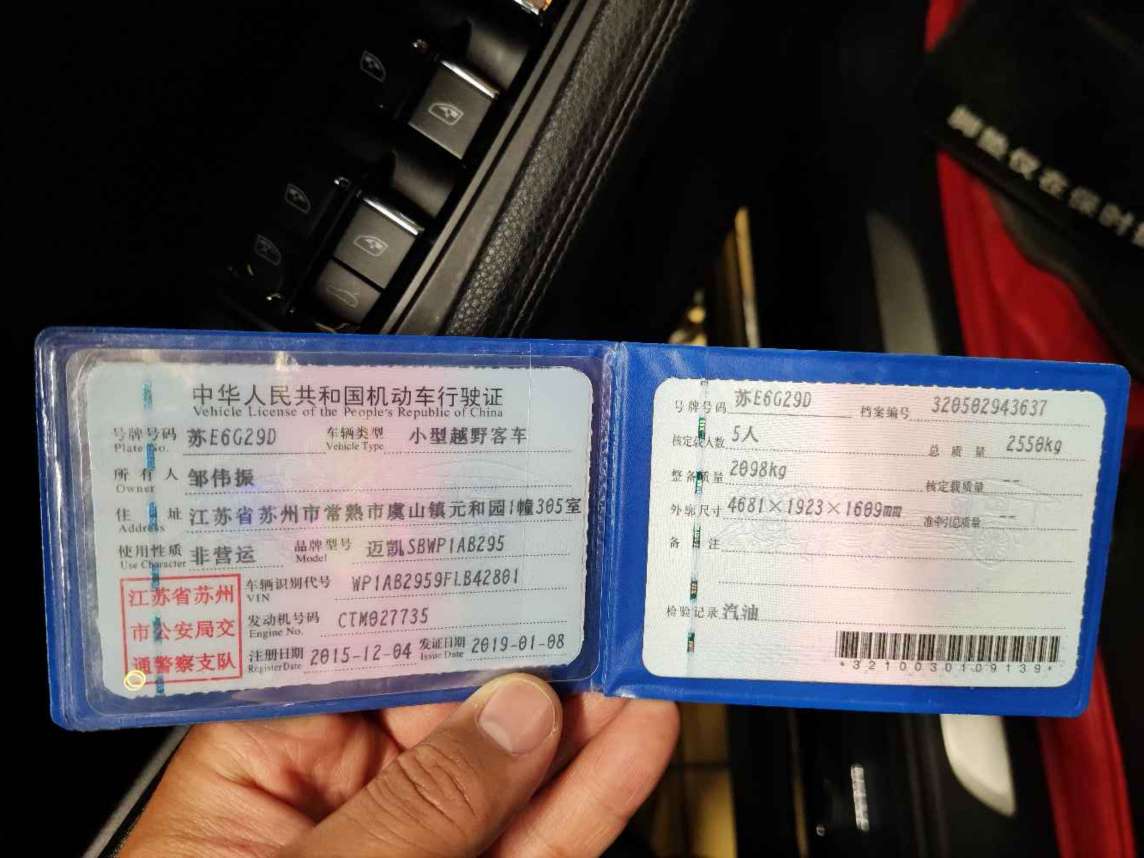 中华人民共和国机动车行驶证
Vehicle License of the People's Republic of China
号牌号码 苏E6G29D 车辆类型 小型越野客车
Plate No. Vehicle Type
所有人 邹伟振
Owner
住址 江苏省苏州市常熟市虞山镇元和园1幢305室
Address
使用性质 非营运 品牌型号 迈凯SBWP1AB295
Use Character Model
江苏省苏州
市公安局交
通警察支队
车辆识别代号 WP1AB2959FLB42801
VIN
发动机号码 CTM027735
Engine No.
注册日期 2015-12-04 发证日期 2019-01-08
Register Date Issue Date
号牌号码 苏E6G29D 档案编号 320502943637
核定载人数 5人 总质量 2550kg
整备质量 2098kg 核定载质量 --
外廓尺寸 4681×1923×1609mm 准牵引总质量 --
备注
检验记录 汽油
*3210030109139*
脚垫仅在保时